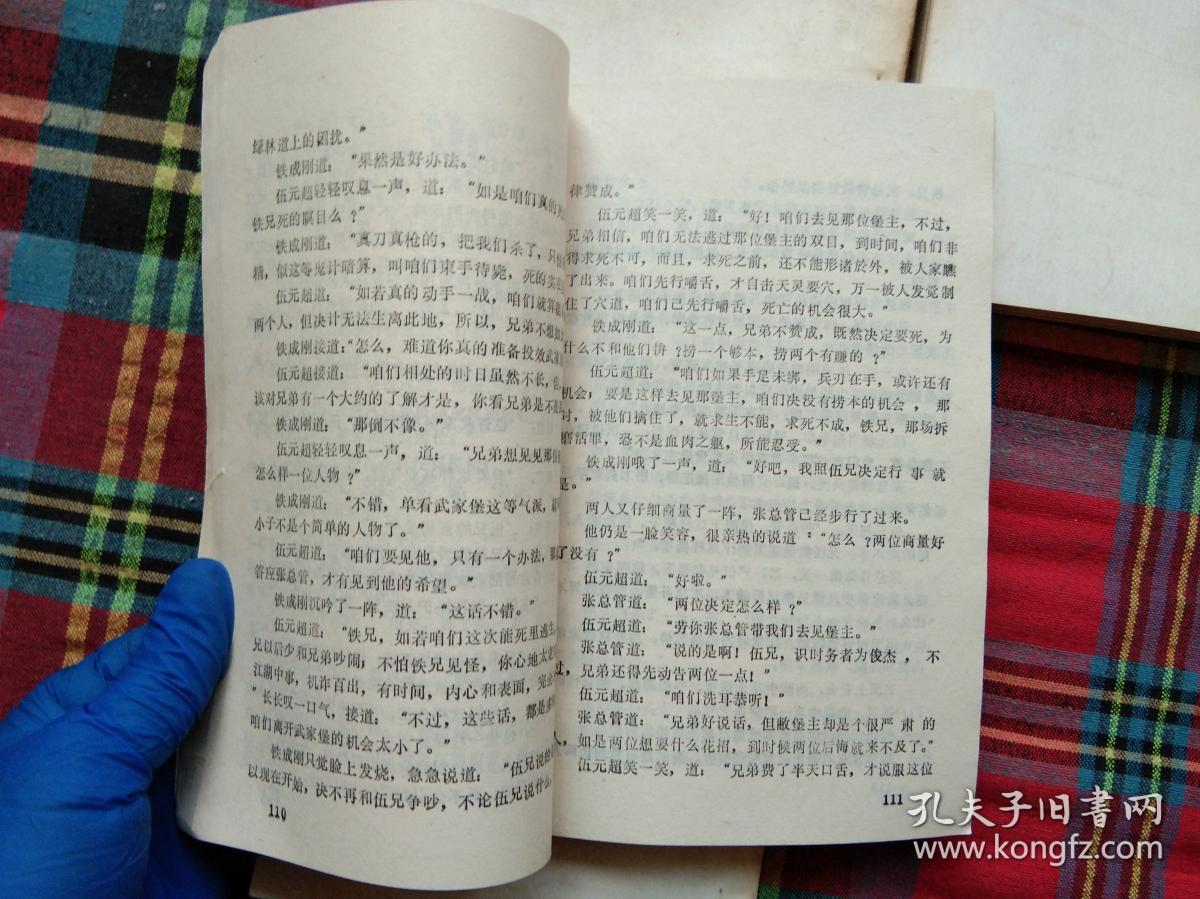 绿林道上的困扰。”
铁成刚道：“果然是好办法。”
伍元超轻轻叹息一声，道：“如是咱们真的死
铁兄死的瞑目么？”
铁成刚道：“真刀真枪的，把我们杀了，只
精，似这等鬼计暗算，叫咱们束手待毙，死的实
伍元超道：“如若真的动手一战，咱们就算
两个人，但决计无法生离此地，所以，兄弟不想
铁成刚接道：“怎么，难道你真的准备投效武
伍元超接道：“咱们相处的时日虽然不长，
该对兄弟有一个大约的了解才是，你看兄弟是不
铁成刚道：“那倒不像。”
伍元超轻轻叹息一声，道：“兄弟想见见那
怎么样一位人物？”
铁成刚道：“不错，单看武家堡这等气派，
小子不是个简单的人物了。”
伍元超道：“咱们要见他，只有一个办法，
答应张总管，才有见到他的希望。”
铁成刚沉吟了一阵，道：“这话不错。”
伍元超道：“铁兄，如若咱们这次能死里逃生，
兄以后少和兄弟吵闹，不怕铁兄见怪，你心地太
江湖中事，机诈百出，有时间，内心和表面，完
”长长叹一口气，接道：“不过，这些话，都是
咱们离开武家堡的机会太小了。”
铁成刚只觉脸上发烧，急急说道：“伍兄说的
以现在开始，决不再和伍兄争吵，不论伍兄说什么，
110
律赞成。”
伍元超笑一笑，道：“好！咱们去见那位堡主，不过，
兄弟相信，咱们无法逃过那位堡主的双目，到时间，咱们非
得求死不可，而且，求死之前，还不能形诸於外，被人家瞧
了出来。咱们先行嚼舌，才自击天灵要穴，万一被人发觉制
住了穴道，咱们已先行嚼舌，死亡的机会很大。”
铁成刚道：“这一点，兄弟不赞成，既然决定要死，为
什么不和他们拚？捞一个够本，捞两个有赚的？”
伍元超道：“咱们如果手足未绑，兵刃在手，或许还有
机会；要是这样去见那堡主，咱们决没有捞本的机会，那
时，被他们擒住了，就求生不能，求死不成，铁兄，那场拆
磨活罪，恐不是血肉之躯，所能忍受。”
铁成刚哦了一声，道：“好吧，我照伍兄决定行事就
是。”
两人又仔细商量了一阵，张总管已经步行了过来。
他仍是一脸笑容，很亲热的说道：“怎么？两位商量好
了没有？”
伍元超道：“好啦。”
张总管道：“两位决定怎么样？”
伍元超道：“劳你张总管带我们去见堡主。”
张总管道：“说的是啊！伍兄，识时务者为俊杰，不
过，兄弟还得先动告两位一点！”
伍元超道：“咱们洗耳恭听！”
张总管道：“兄弟好说话，但敝堡主却是个很严肃的
人，如是两位想要什么花招，到时候两位后悔就来不及了。”
伍元超笑一笑，道：“兄弟费了半天口舌，才说服这位
111
孔夫子旧书网
www.kongfz.com